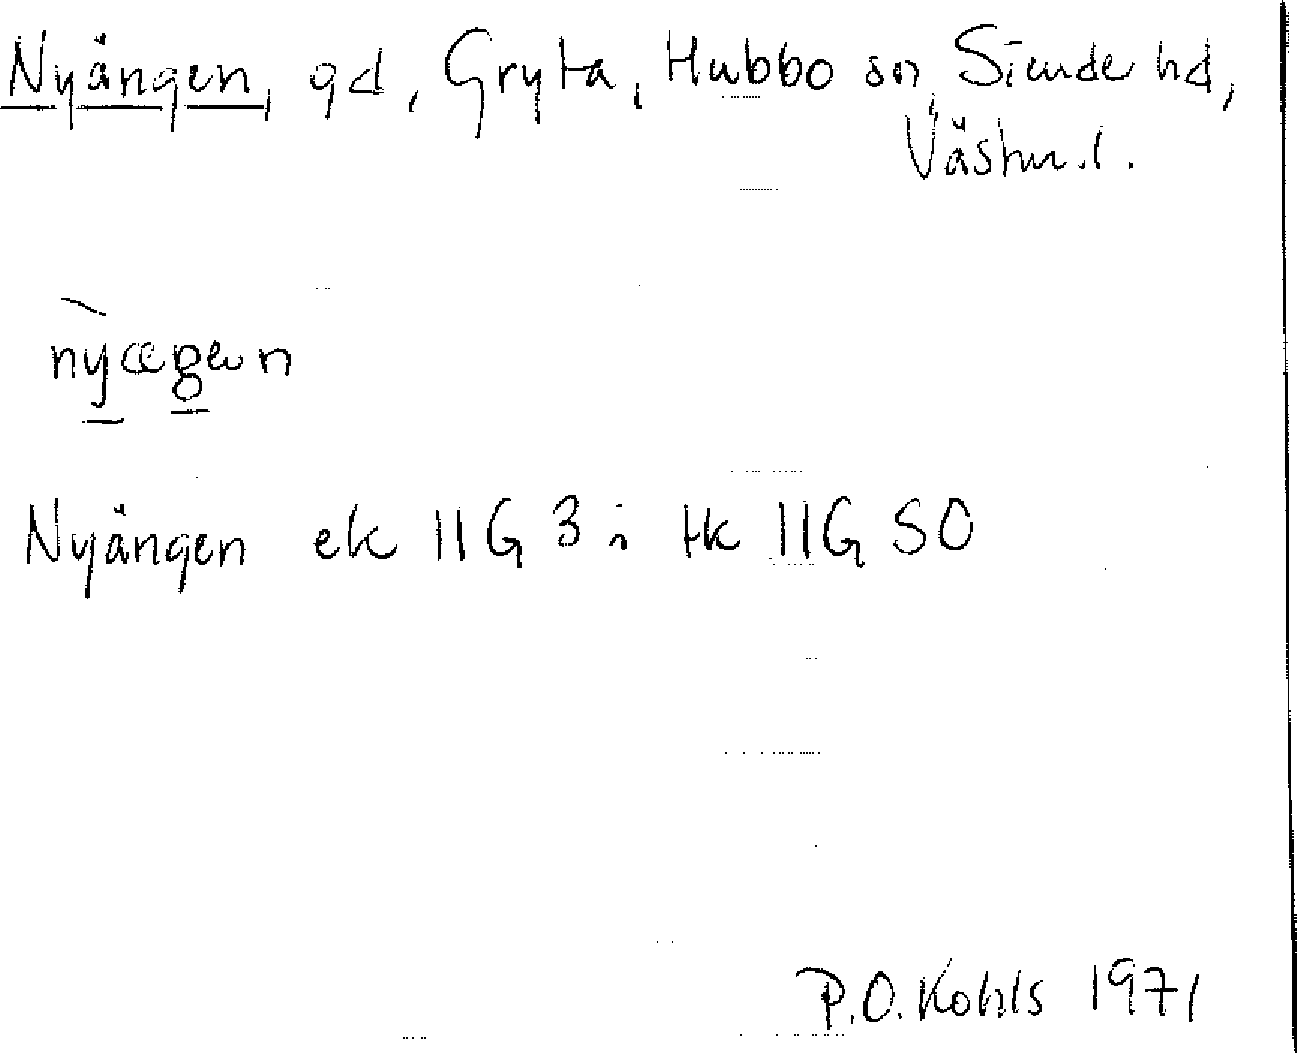 Nyängen, gd, Gryta, Hubbo sn, Siende hd,
Västm.l.
Nyängen ek 11G 3i tk 11G SO
P.O. Kohls 1971